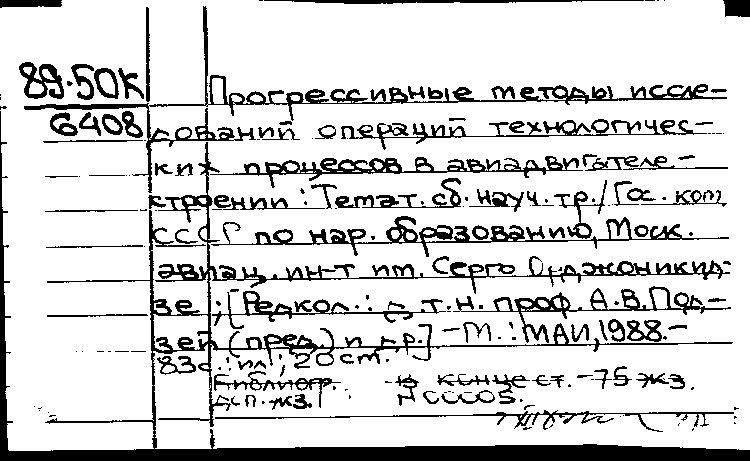 89-50К
6408
Прогрессивные методы иссле-
дований операций технологичес-
ких процессов в авиадвигателе-
строении : Темат. сб. науч. тр./Гос. ком.
СССР по нар. образованию, Моск.
авиац. ин-т им. Серго Орджоникид-
зе ; [Редкол.: д.т.н. проф. А.В.Под-
зей (пред.) и др.] -М. : МАИ, 1988.-
83с. : ил ; 20 cm.
Библиогр. в конце ст. -75 экз.
дсп. экз. N 00005.